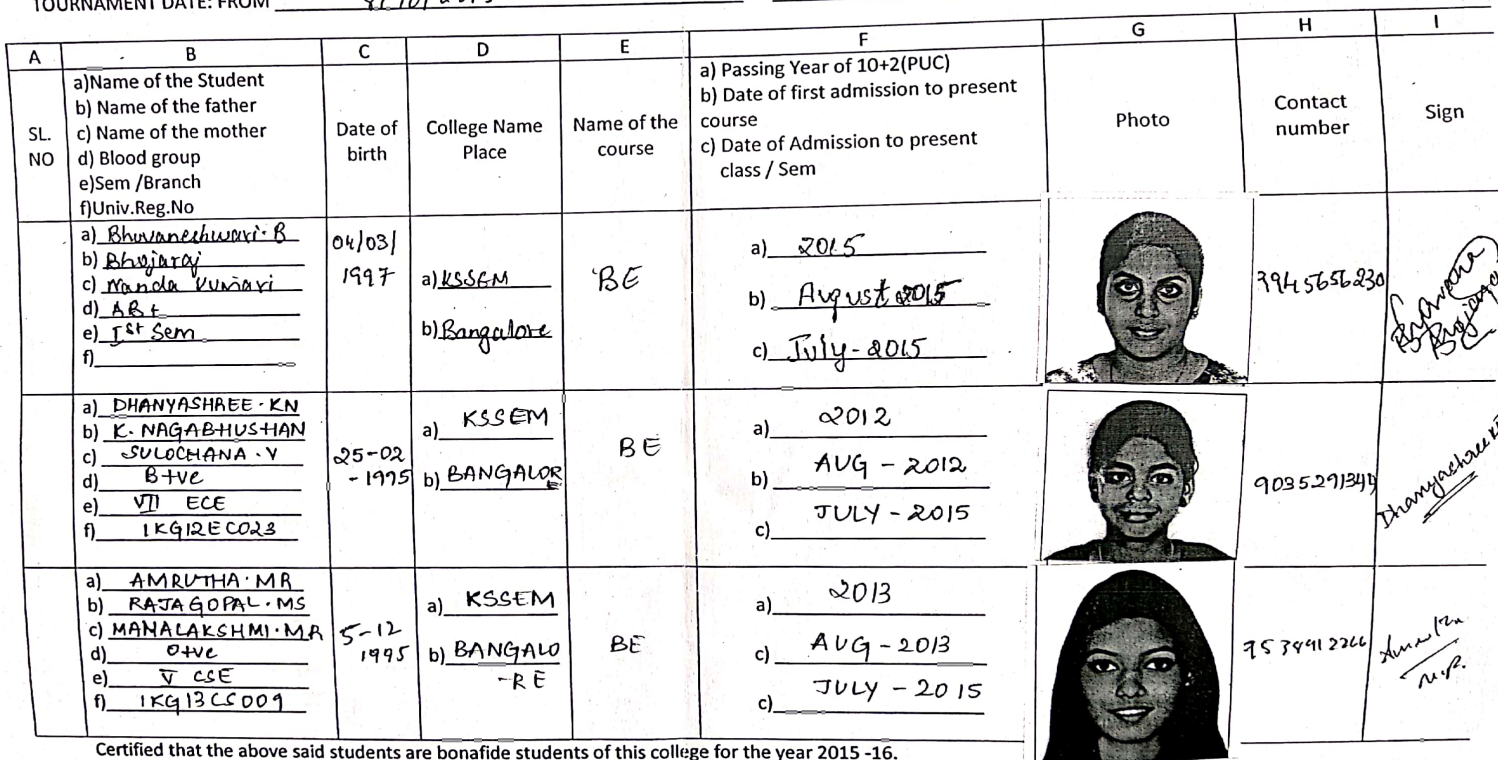 TOURNAMENT DATE: FROM
A B C D E F G H I
SL. NO
a)Name of the Student
b) Name of the father
c) Name of the mother
d) Blood group
e)Sem /Branch
f)Univ.Reg.No
Date of birth
College Name Place
Name of the course
a) Passing Year of 10+2(PUC)
b) Date of first admission to present course
c) Date of Admission to present class / Sem
Photo
Contact number
Sign
a) Bhuvaneshwari. B
b) Bhojaraj
c) Nanda Kumari
d) AB+
e) Ist Sem
f)
04/03/
1997
a) KSSEM
b) Bangalore
BE
a) 2015
b) August 2015
c) July - 2015
a) DHANYASHREE . KN
b) K. NAGABHUSHAN
c) SULOCHANA . V
d) B+ve
e) VII ECE
f) 1KG12EC023
25-02
- 1995
a) KSSEM
b) BANGALOR
E
BE
a) 2012
b) AUG - 2012
c) JULY - 2015
9035291344
Dhanyashree
a) AMRUTHA . MR
b) RAJAGOPAL . MS
c) MAHALAKSHMI . MR
d) O+ve
e) V CSE
f) 1KG13CS009
5-12
1995
a) KSSEM
b) BANGALO
-RE
BE
a) 2013
c) AUG - 2013
c) JULY - 2015
Certified that the above said students are bonafide students of this college for the year 2015 -16.